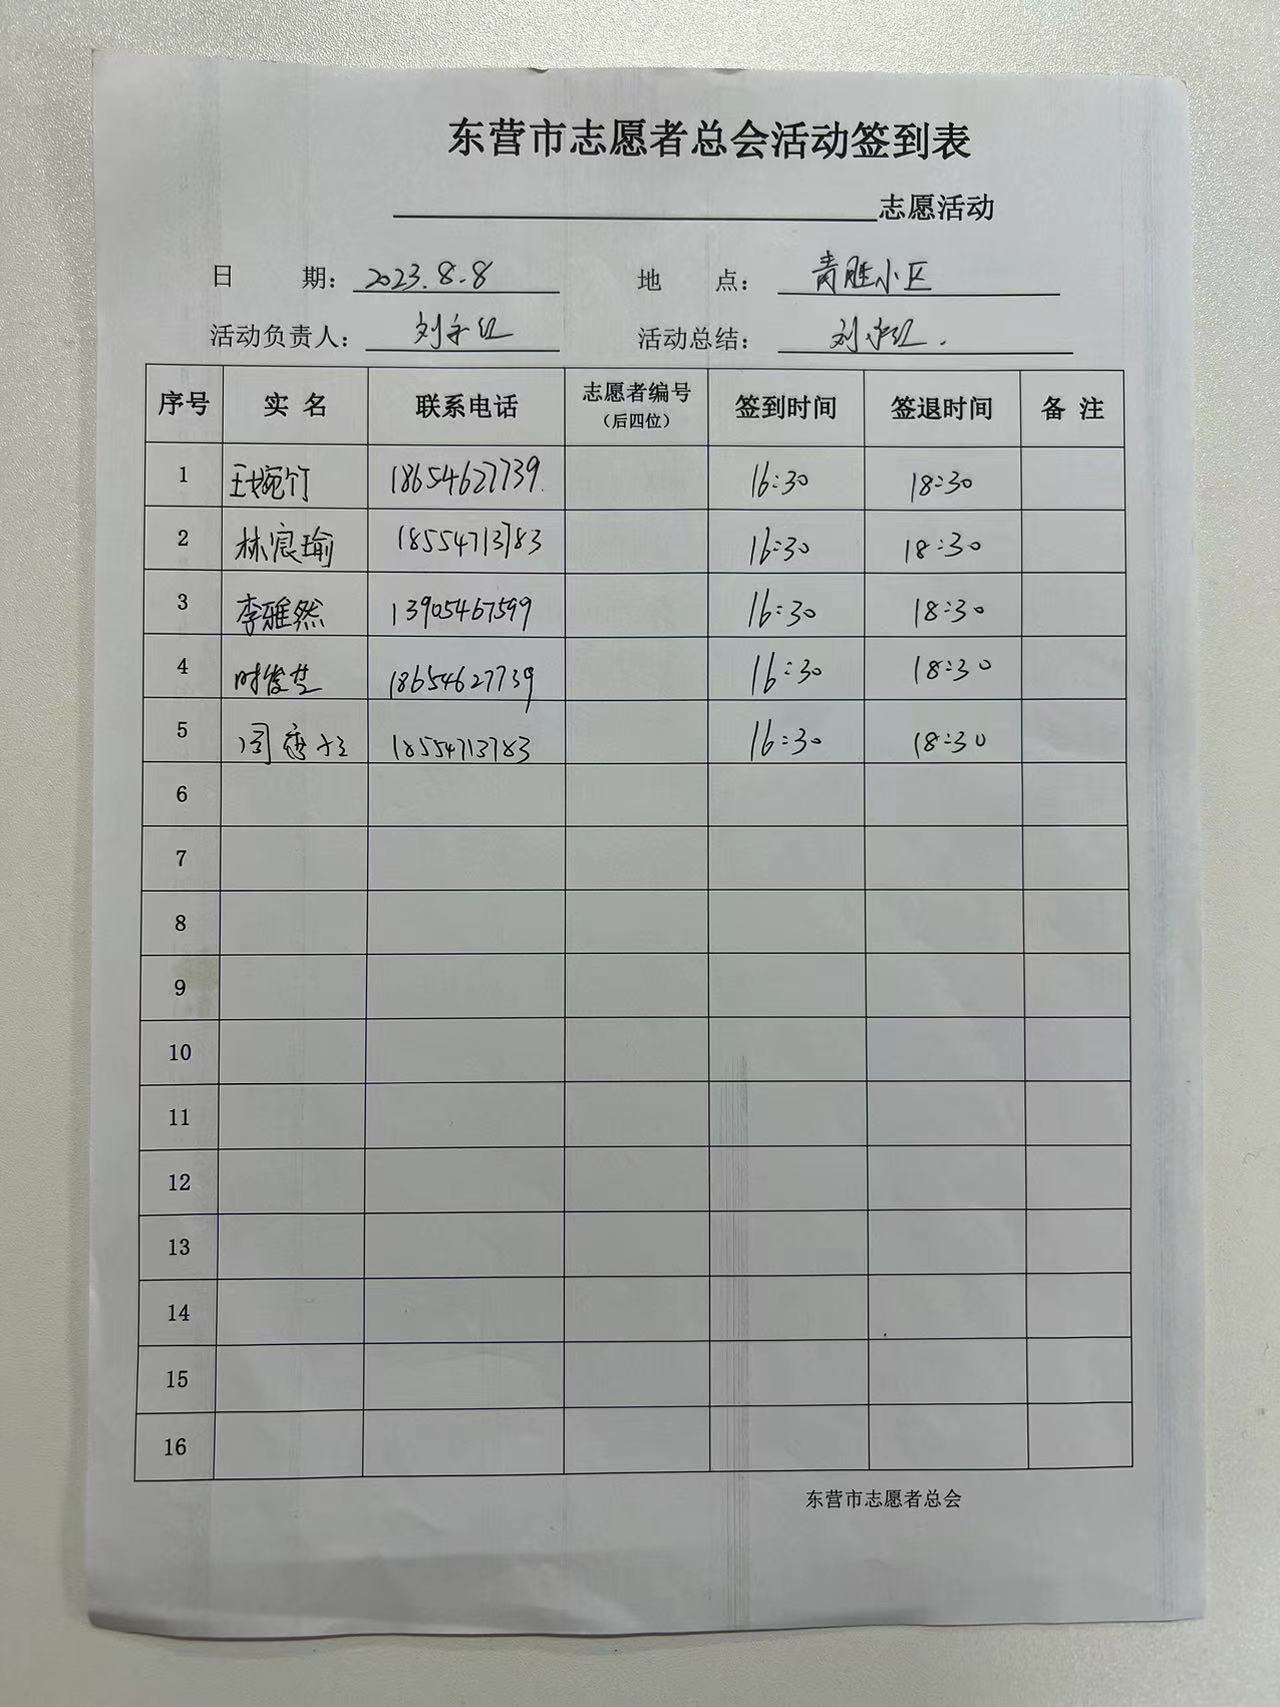 东营市志愿者总会活动签到表
志愿活动
日 期：2023.8.8 地 点：青胜小区
活动负责人：刘永红 活动总结：刘永红.
序号 实名 联系电话 志愿者编号（后四位） 签到时间 签退时间 备注
1 王婉竹 18654627739 16:30 18:30
2 林宸瑜 18554713783 16:30 18:30
3 李雅然 13905467599 16:30 18:30
4 时俊芝 18654627739 16:30 18:30
5 18554713783 16:30 18:30
6
7
8
9
10
11
12
13
14
15
16
东营市志愿者总会